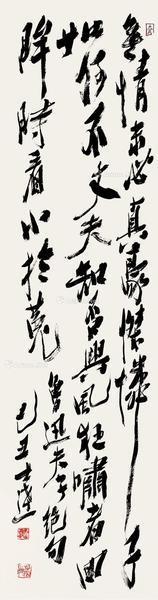 無情未必真豪傑憐子
如何不丈夫知否興風狂嘯者回
眸時看小於菟
魯迅夫子絕句
己丑士澍